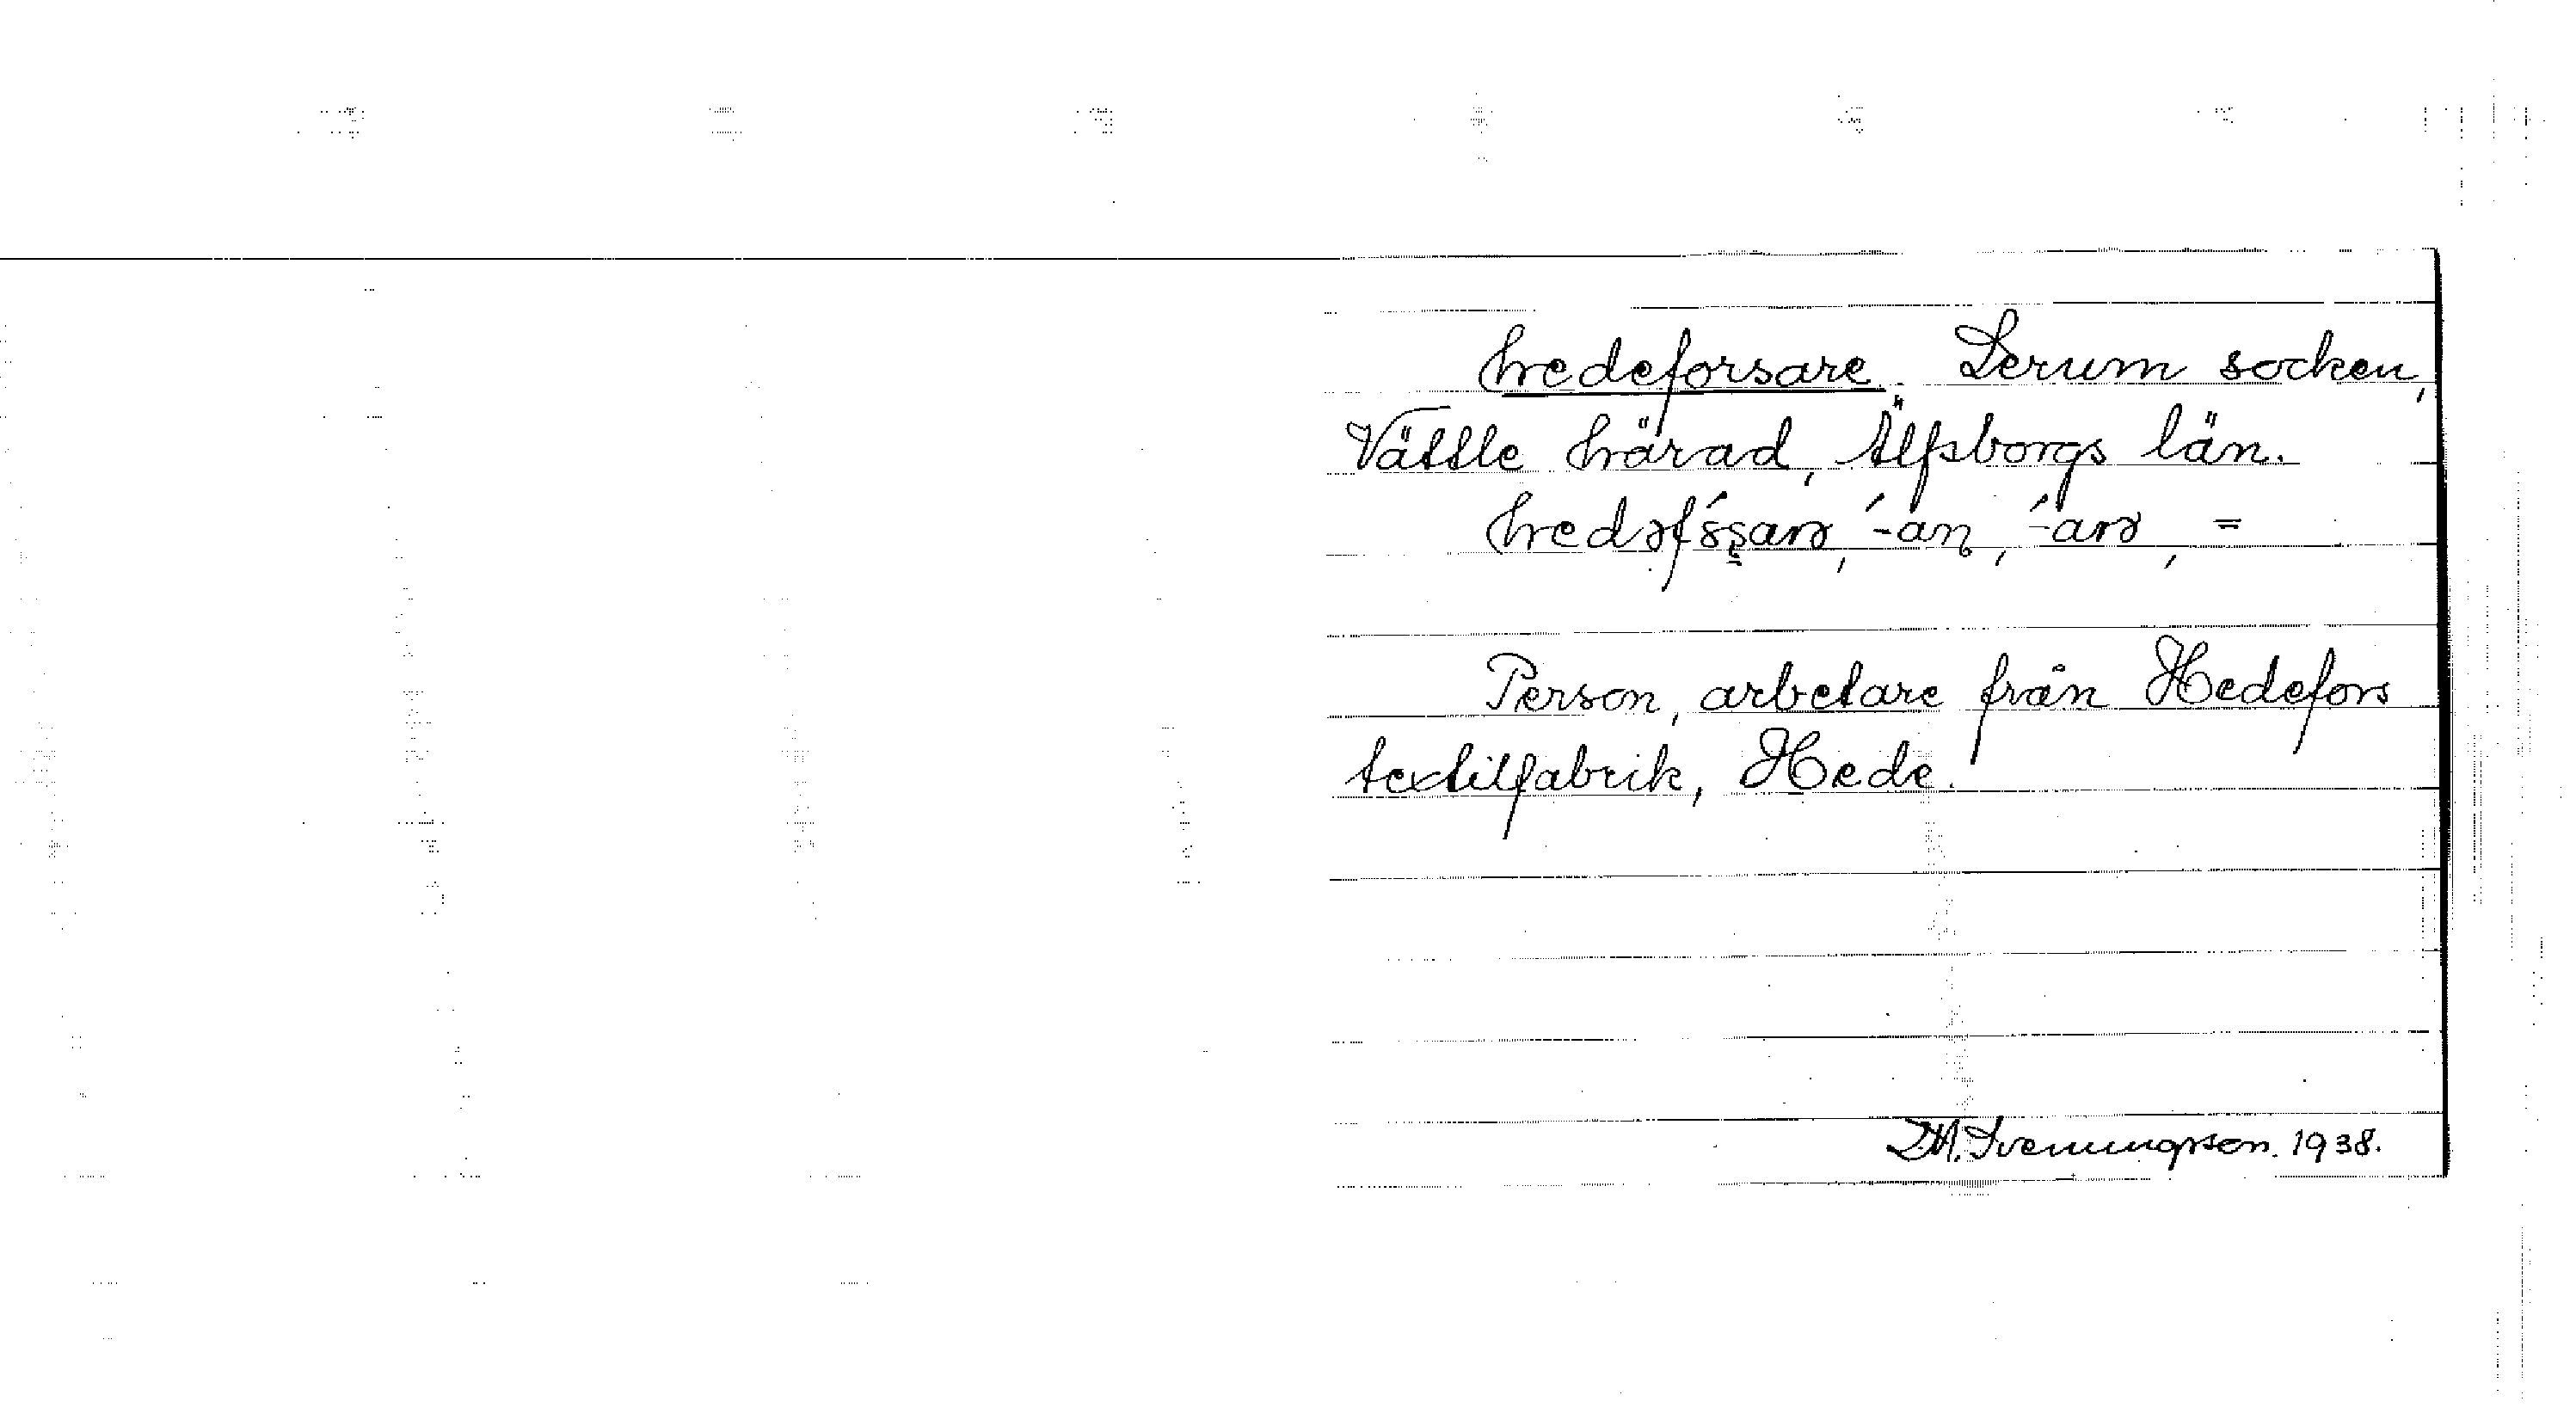 hedeforsare. Lerum socken,
Vättle härad, Älfsborgs län.
-an, -arə, =
Person, arbetare från Hedefors
textilfabrik, Hede.
Svenungsson. 1938.